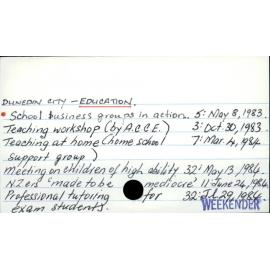 DUNEDIN CITY - EDUCATION.
School business groups in action. 5: May 8, 1983.
Teaching workshop (by A.C.E.) 3: Oct 30, 1983.
Teaching at home (home school 7: Mar 4, 1984.
support group)
Meeting on children of high ability 32: May 13, 1984
NZers "made to be mediocre" 11: June 24, 1984.
Professional tutoring for 32: Jl 29, 1984.
exam students.
WEEKENDER